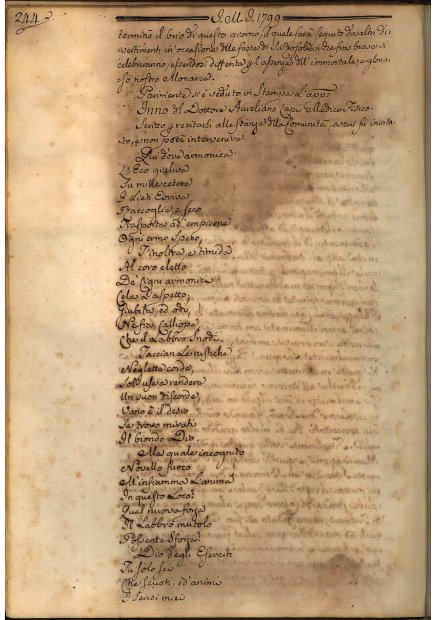 244
J. M. J. 1799
terminò il brio di questo giorno, il quale sarà seguito da altri di-
vertimenti in occasione delle feste di S. che fra breve si
celebreranno, essendosi per l'assenza dell' immortale, e glorio-
so nostro Monarca.
Parimente si è veduto in Stampa l'app.o
Inno del Dottore Aureliano Medico Fisico.
Scritto per recitarsi alle stanze della Comunità, a cui fù invita-
to, e non potè intervenire.
Qui dove armonica
L'Eco giuliva
Su mille cetere
I lieti Evviva
Raccoglie, e seco
Trasporta ad empierne
Ogni ermo Speco,
T'inoltra, e timida
Al coro eletto
De' Sagri armonici
Cela l'aspetto,
Giubila, ed odi,
Nè fia, Calliope,
Che il Labbro Snodi.
Taccian Le rustiche
Neglette corde,
Solo use a rendere
Un suon discorde,
Vano è il desio
Se trono mirati
Il biondo Dio.
Ma quale incognito
Novello fuoco
M'infiamma L'anima
In questo Loco?
Qual nuova forza
Il Labbro mutolo
Possente Sforza?
Dio degli Eserciti
Tu solo sei
Che scuoti, ed animi
I sensi miei